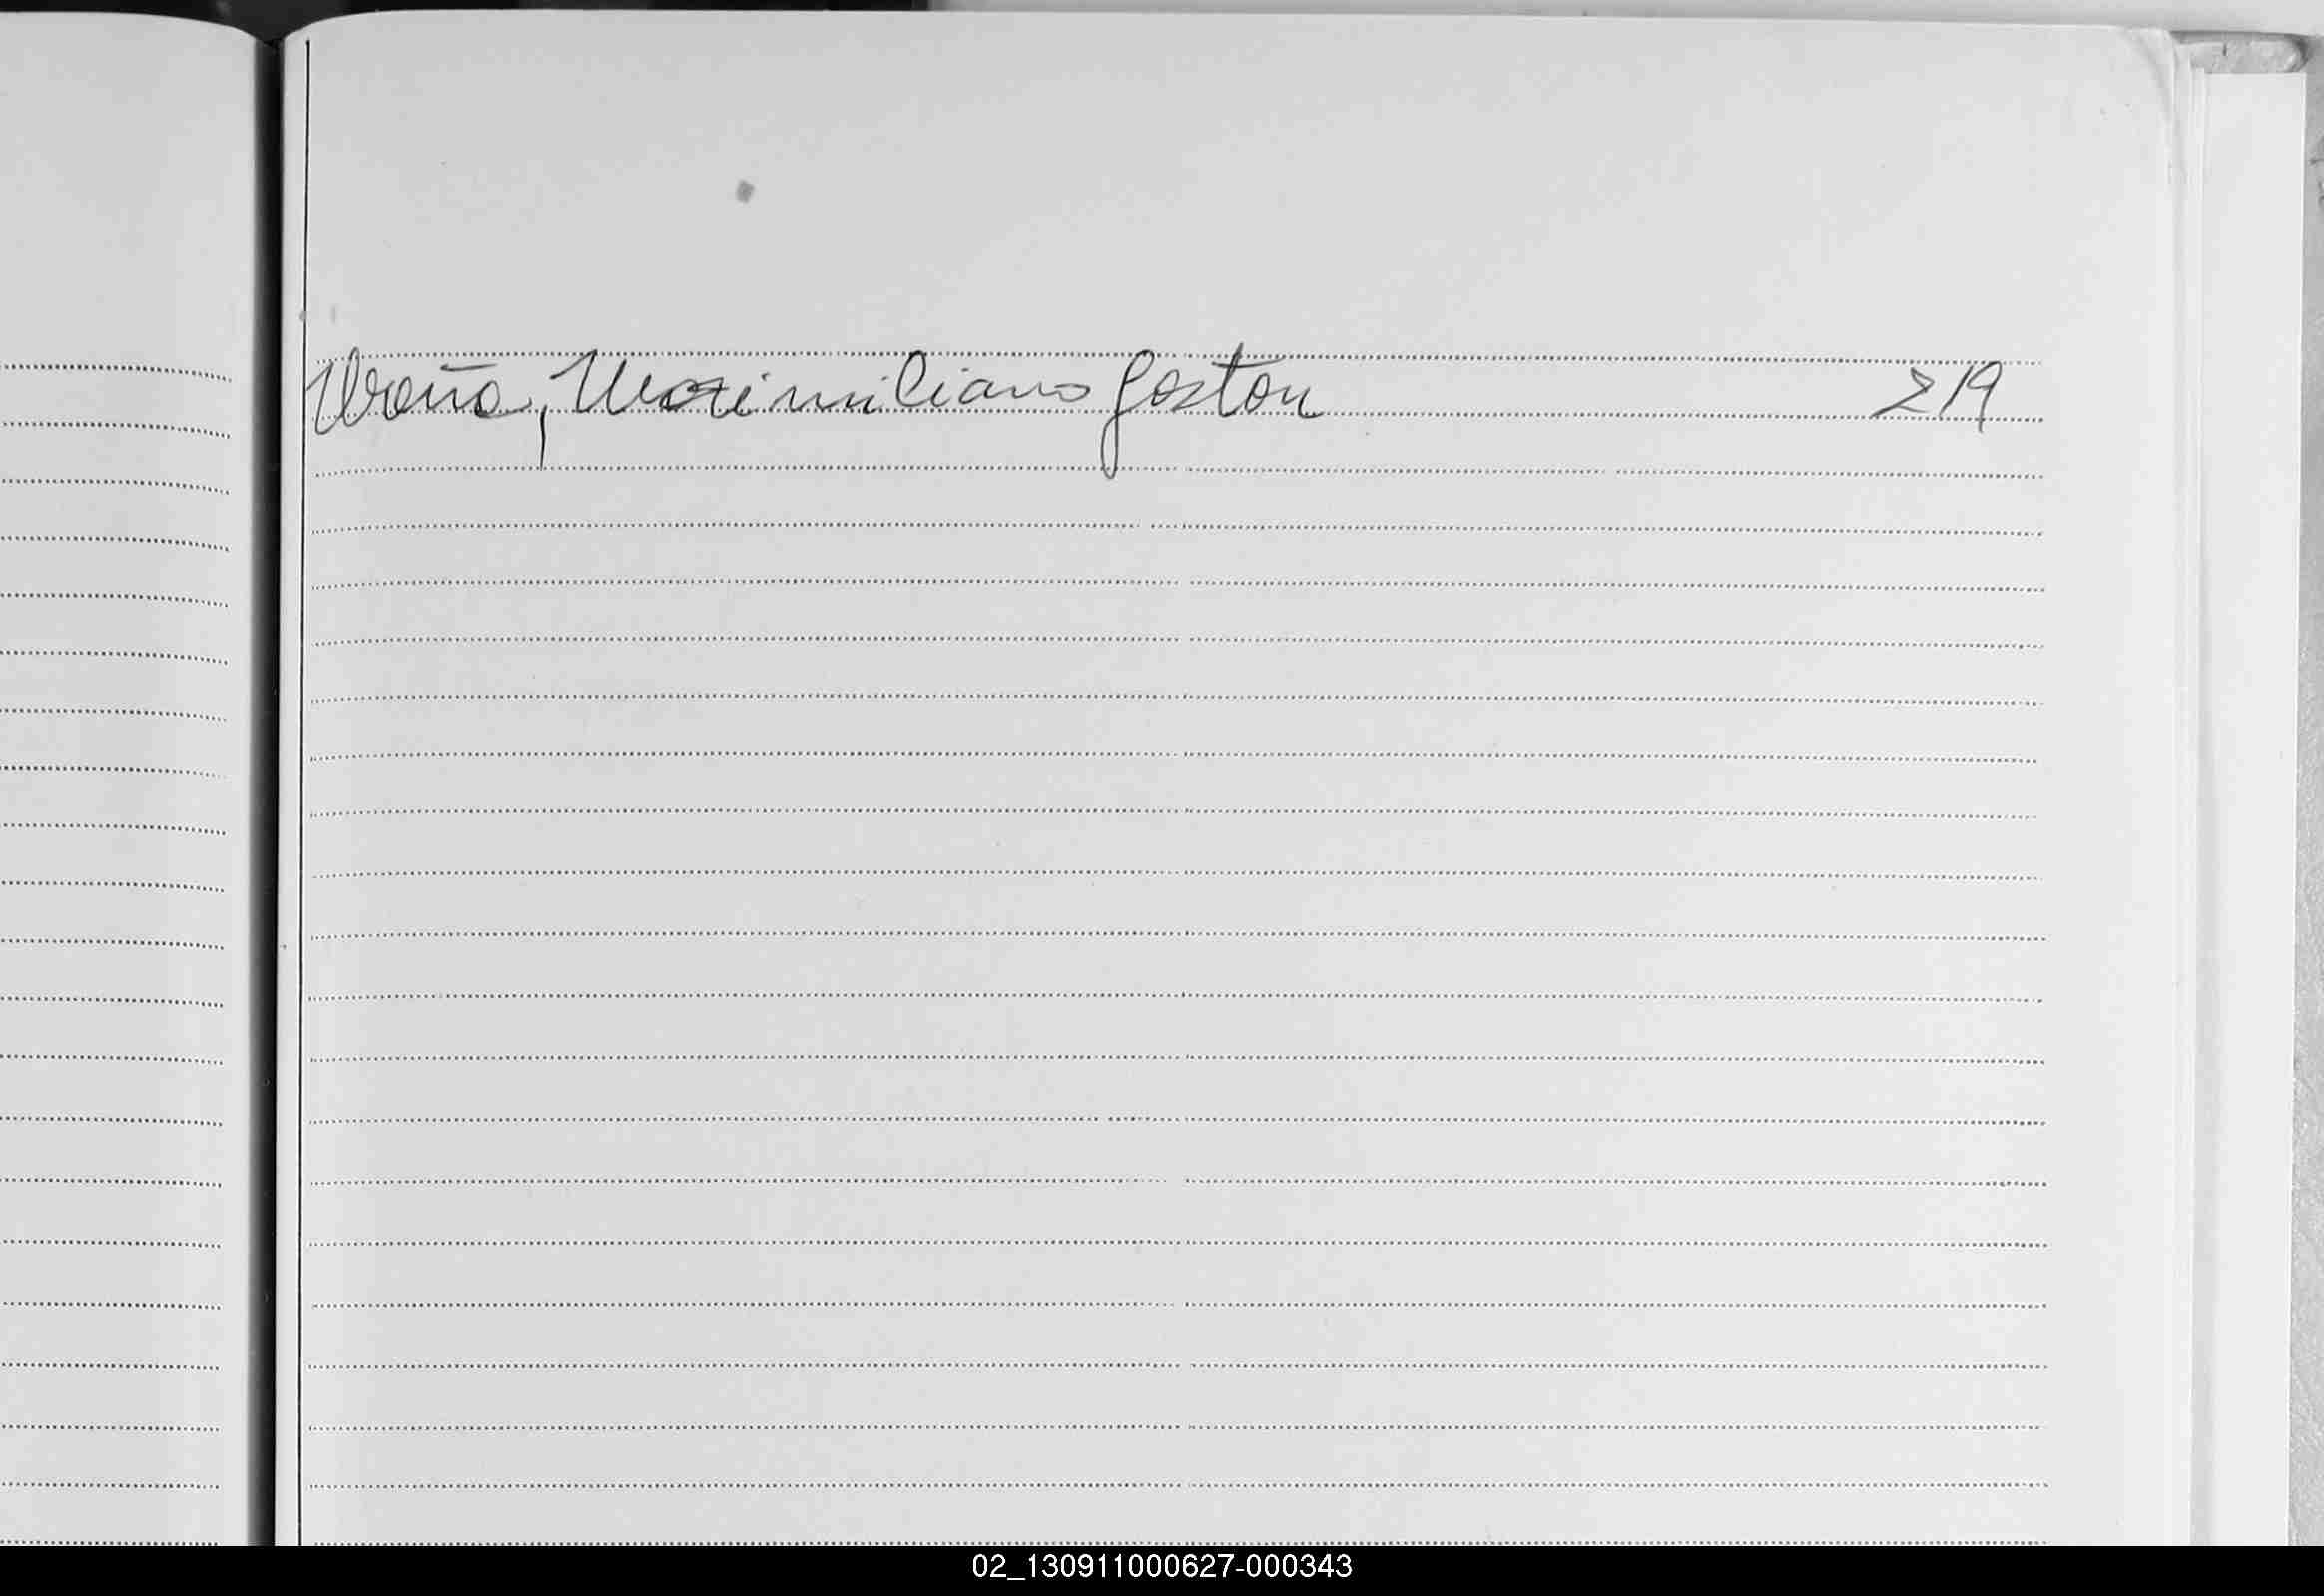 Ureña, Maximiliano Gaston 219
02_130911000627-000343